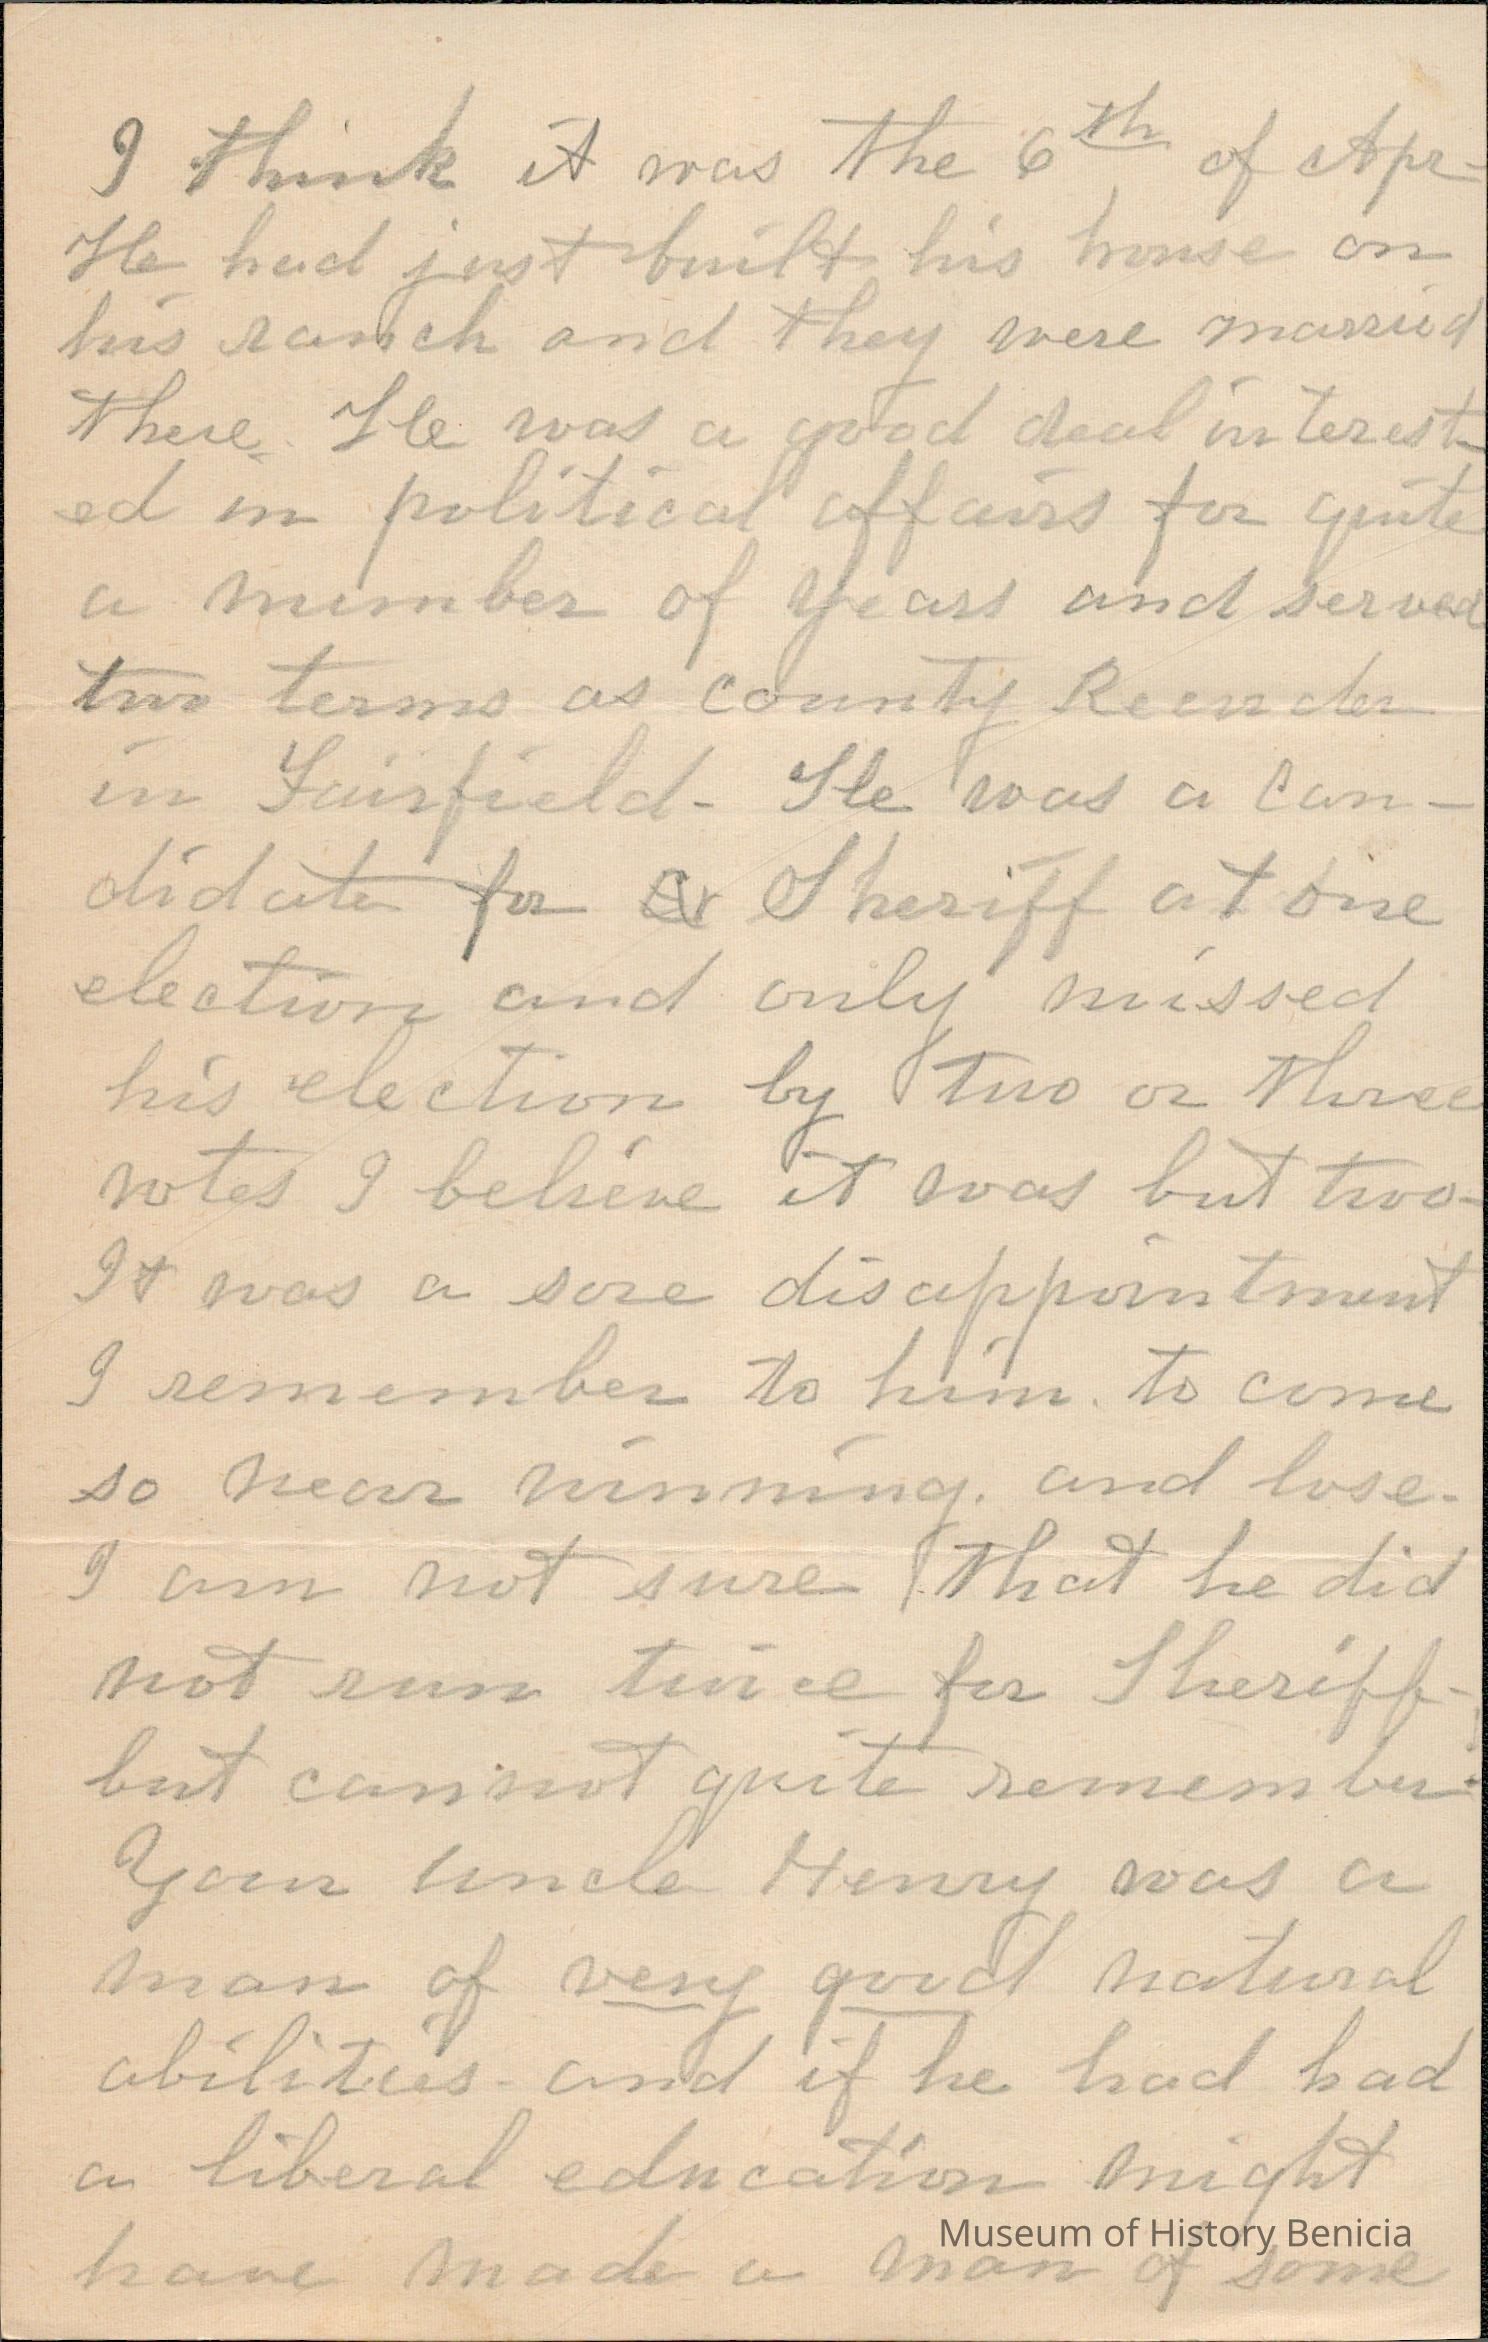 I think it was the 6th of Apr-
He had just built his house on
his ranch and they were married
there. He was a good deal interest-
ed in political affairs for quite
a number of years and served
two terms as county Recorder
in Fairfield - He was a can-
didate for Sheriff at one
election and only missed
his election by two or three
votes I believe it was but two-
It was a sore disappointment
I remember to him. to come
so near winning. and lose.
I am not sure that he did
not run twice for Sheriff-
but cannot quite remember.
Your uncle Henry was a
man of very good natural
abilities - and if he had had
a liberal education might
Museum of History Benicia
have made a man of some